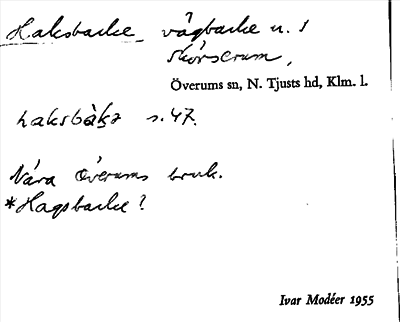 Haksbacke vägbacke n. 1
Skörserum,
Överums sn, N. Tjusts hd, Klm. l.
haksbàkə s. 47.
Nära Överums bruk.
*Hagsbacke?
Ivar Modéer 1955